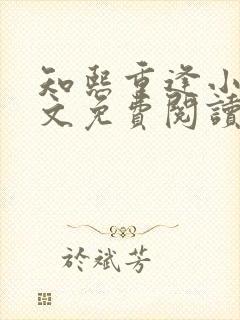 知熙重逢小
文免費閱讀
於斌芳